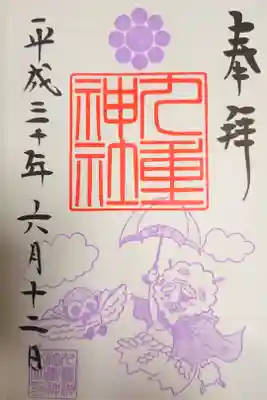 奉拝
九重
神社
平成三十年六月十二日